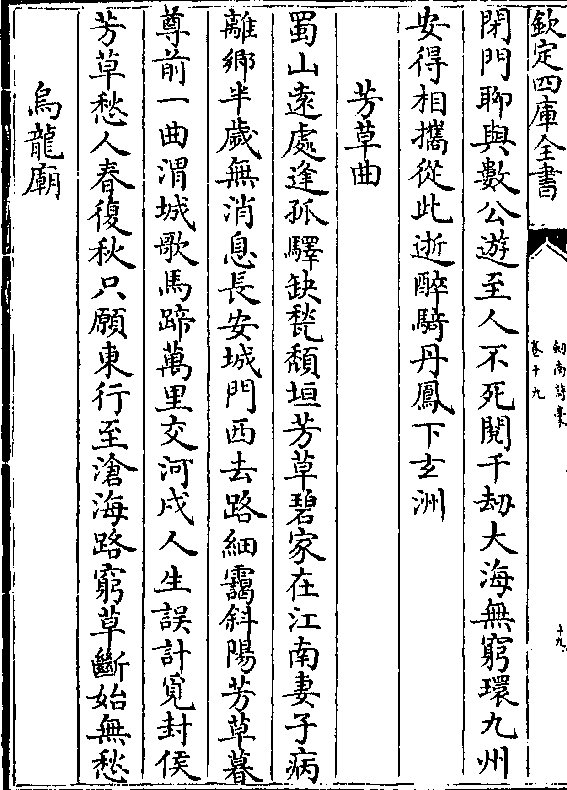 欽定四庫全書
劍南詩稾
卷十九
十九
閉門聊與數公遊至人不死閱千劫大海無窮環九州
安得相攜從此逝醉騎丹鳳下玄洲
芳草曲
蜀山遠處逢孤驛缺甃頹垣芳草碧家在江南妻子病
離鄉半歲無消息長安城門西去路細靄斜陽芳草暮
尊前一曲渭城歌馬蹄萬里交河戍人生誤計覓封侯
芳草愁人春復秋只願東行至滄海路窮草斷始無愁
烏龍廟